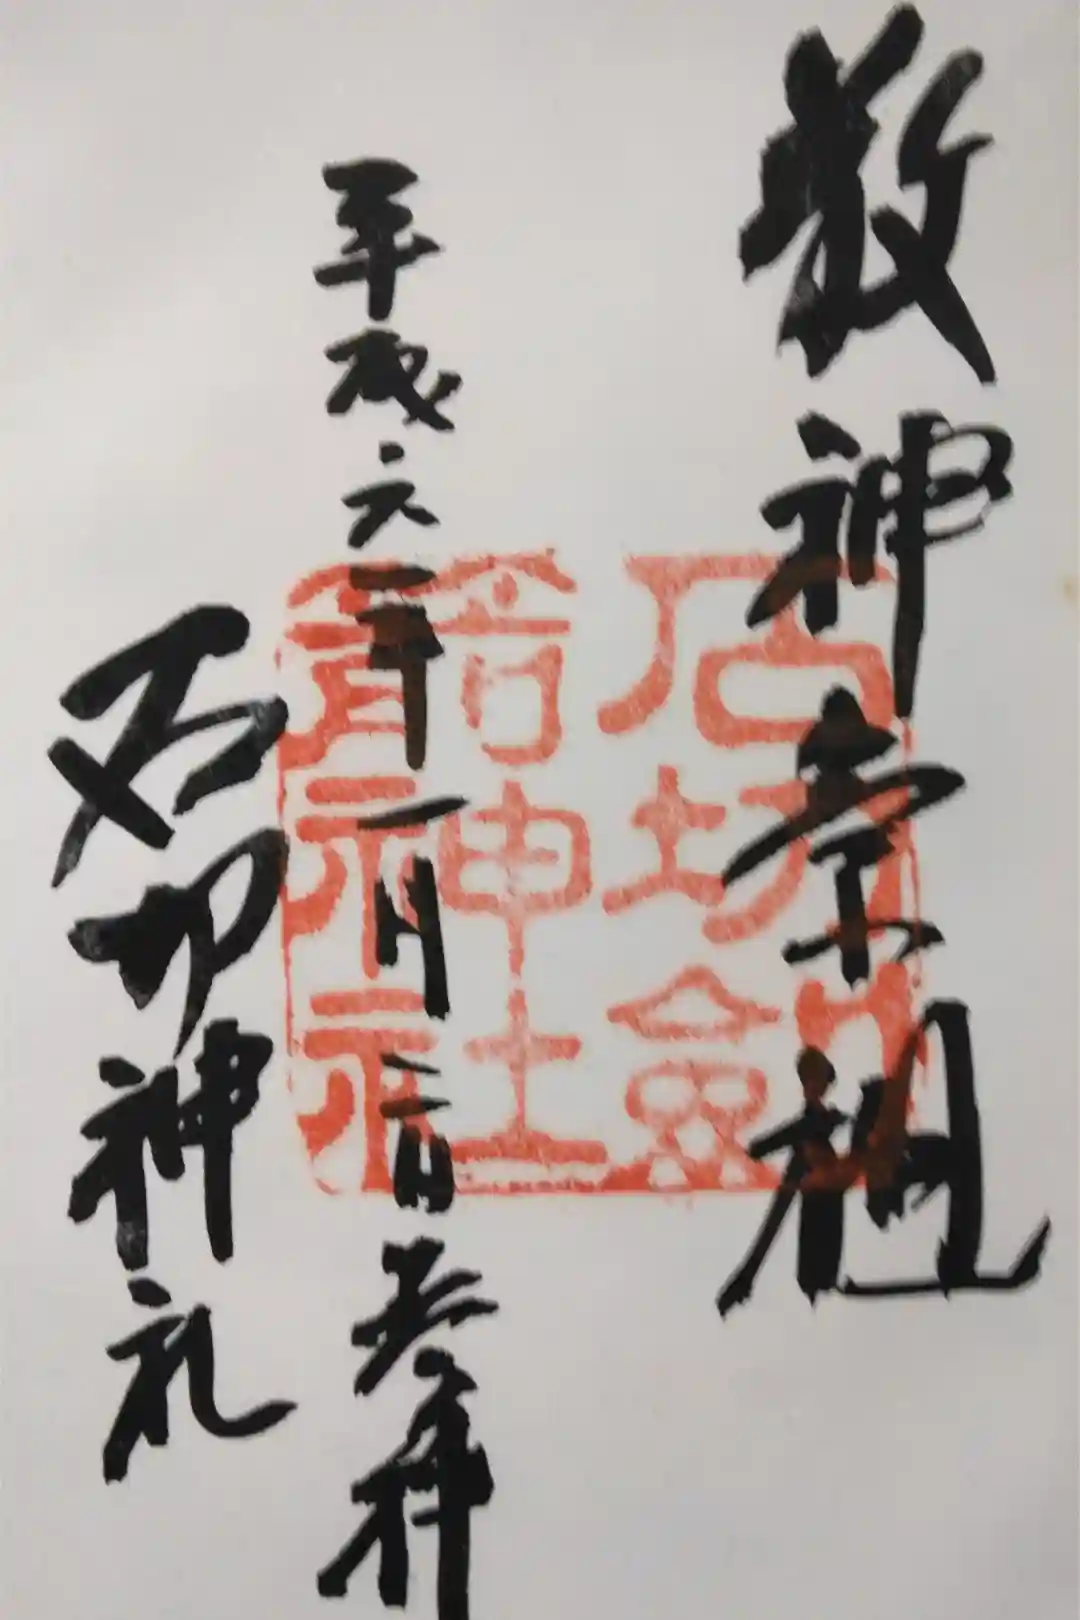 敬神崇祖
石切劔
箭神社
平成六年一月二日参拝
石切神社